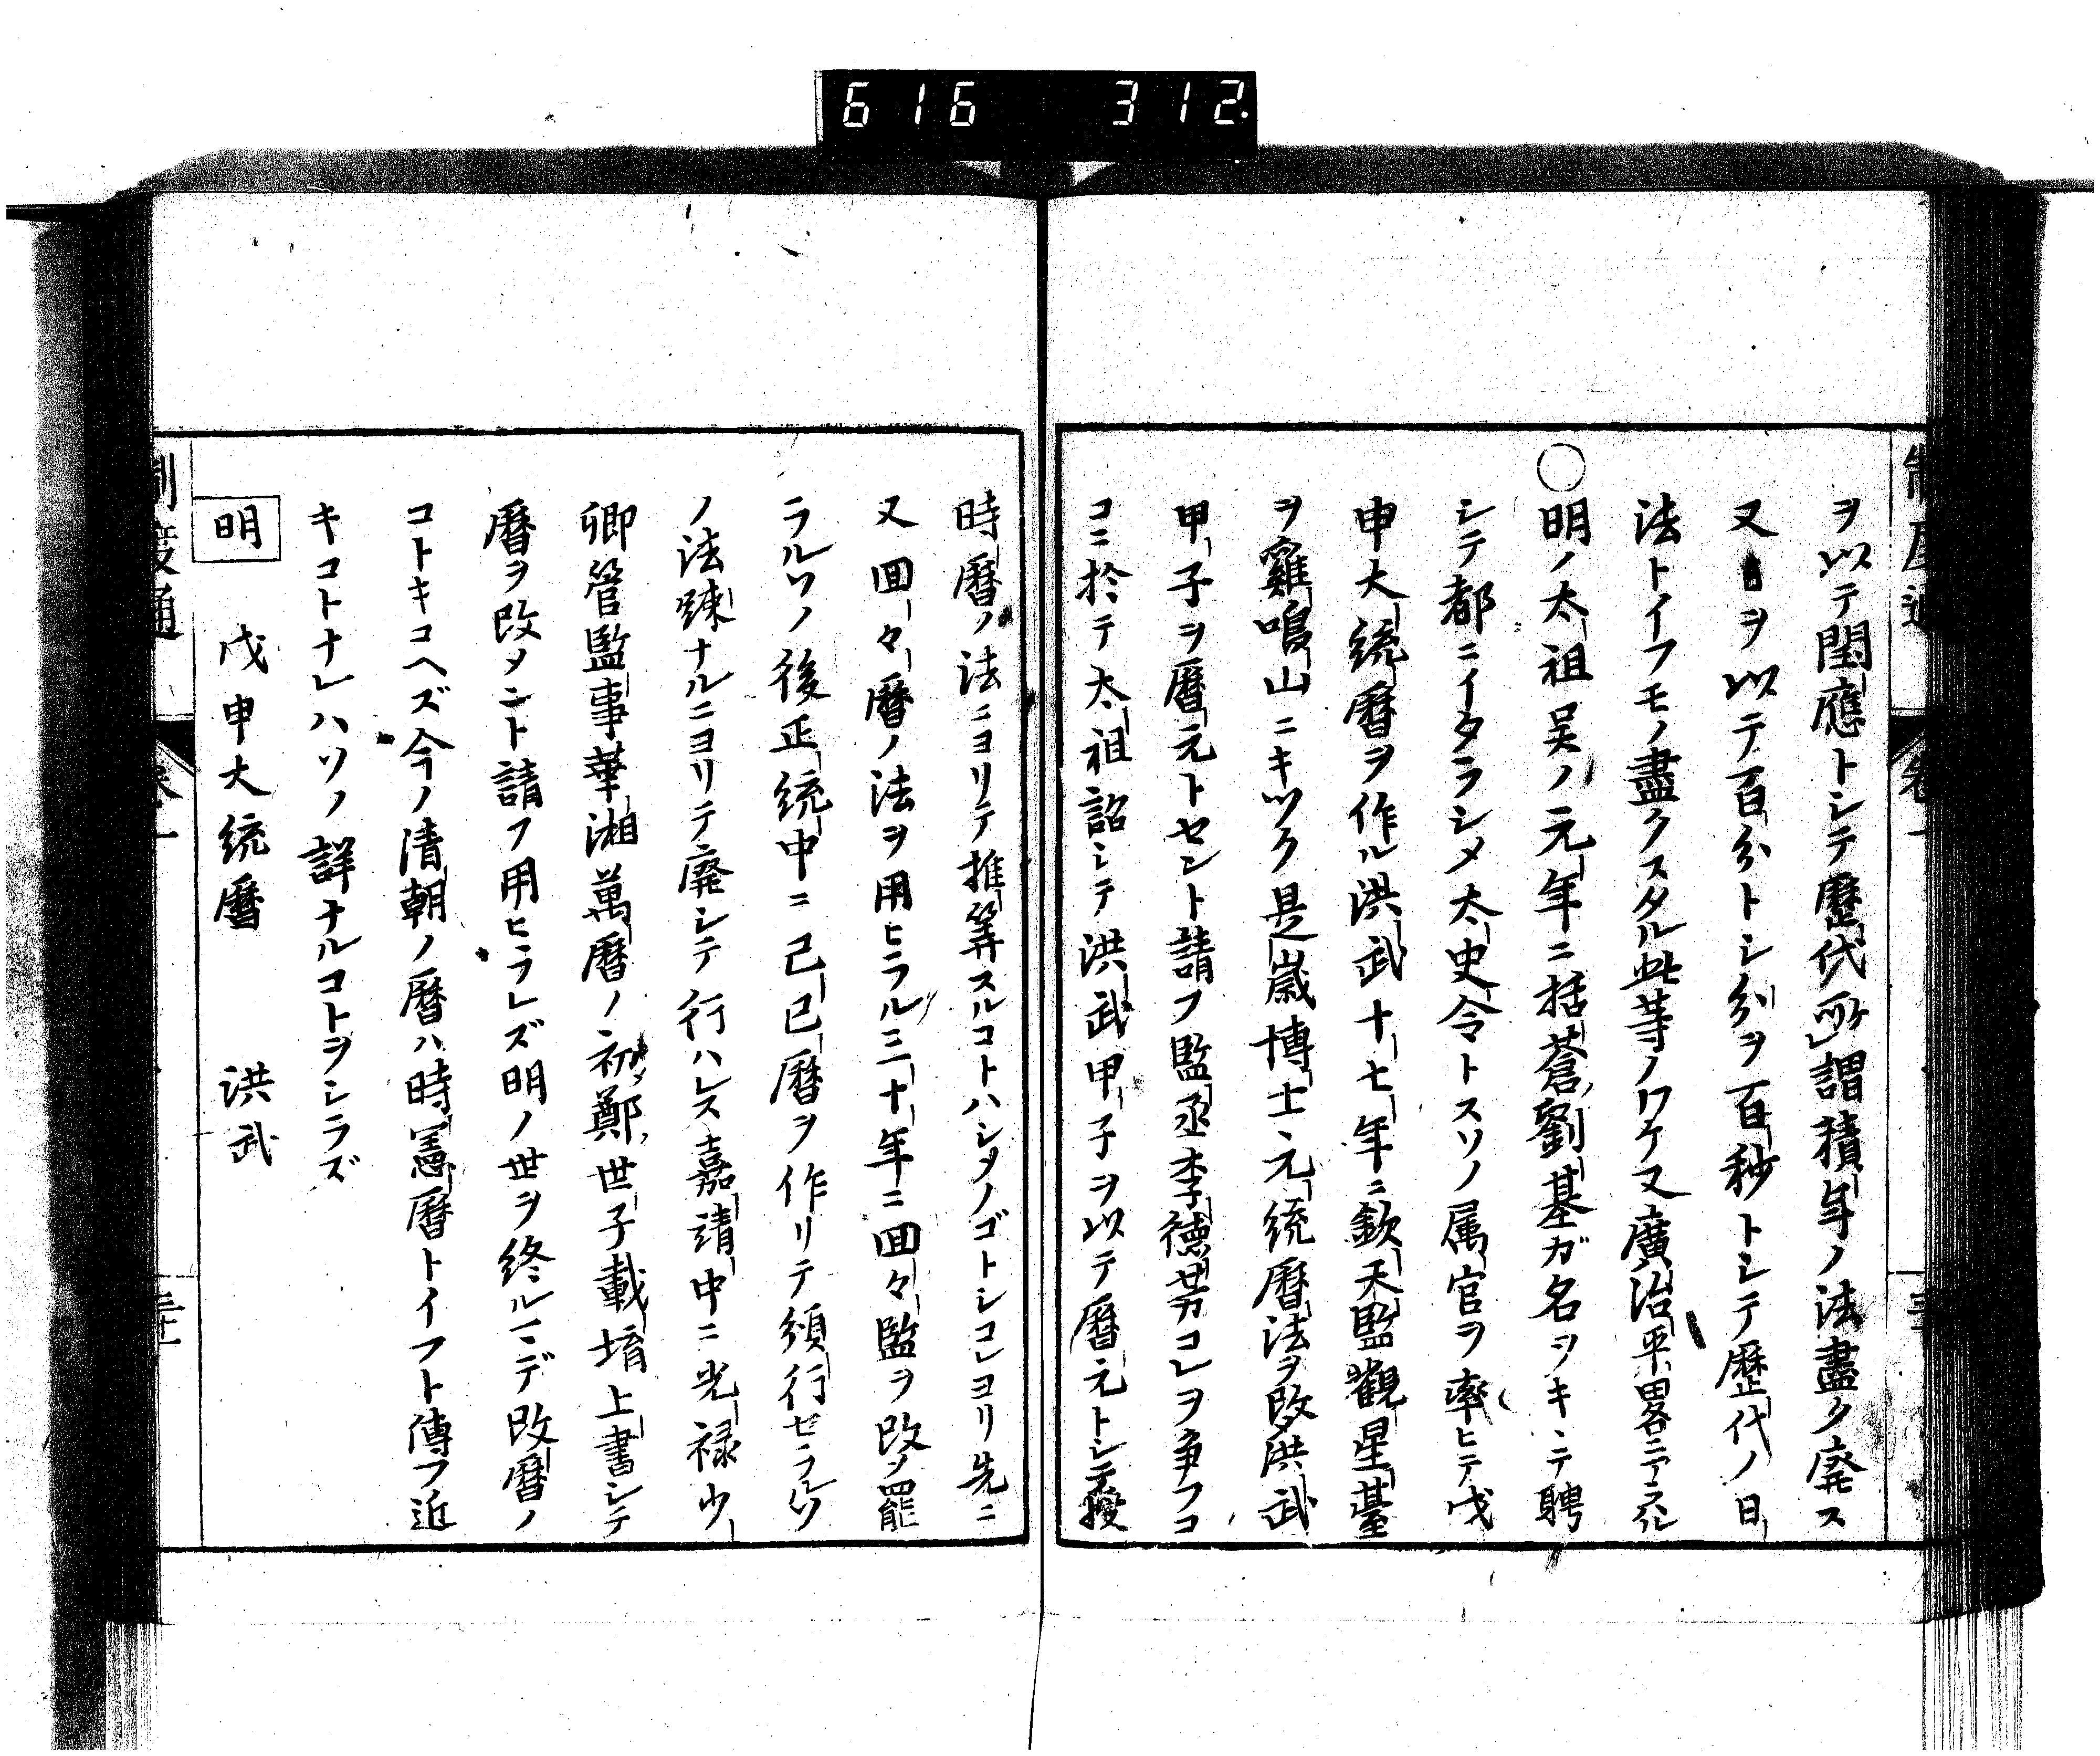 616 312.
制度通 卷一
ヲ以テ閏應トシテ歷代所謂積年ノ法盡ク廃ス
又日ヲ以テ百分トシ分ヲ百秒トシテ歷代ノ日
法トイフモノ盡クスタル此等ノワケ又廣治平畧ニアラハル
○明ノ太祖吴ノ元年ニ括蒼劉基ガ名ヲキヽテ聘
シテ都ニイタラシメ太史令トスソノ属官ヲ率ヒテ戊
申大統曆ヲ作ル洪武十七年ニ欽天監觀星䑓
ヲ雞鳴山ニキツク是歳博士元統曆法ヲ改メ洪武
甲子ヲ曆元トセント請フ監丞李德芳コレヲ争フコ
コニ於テ太祖詔シテ洪武甲子ヲ以テ曆元トシテ授
時曆ノ法ニヨリテ推筭スルコトハシメノゴトシコレヨリ先ニ
又回々曆ノ法ヲ用ヒラル三十年ニ回々監ヲ改メ罷
ラルソノ後正統中ニ己巳曆ヲ作リテ頒行セラルソ
ノ法踈ナルニヨリテ廃シテ行ハレス嘉靖中ニ光禄少
卿管監事華湘萬曆ノ初鄭世子載堉上書シテ
曆ヲ改メント請フ用ヒラレズ明ノ世ヲ終ルマデ改曆ノ
コトキコヘズ今ノ清朝ノ曆ハ時憲曆トイフト傳フ近
キコトナレハソノ詳ナルコトヲシラズ
明 戊申大統曆 洪武
制度通 卷一